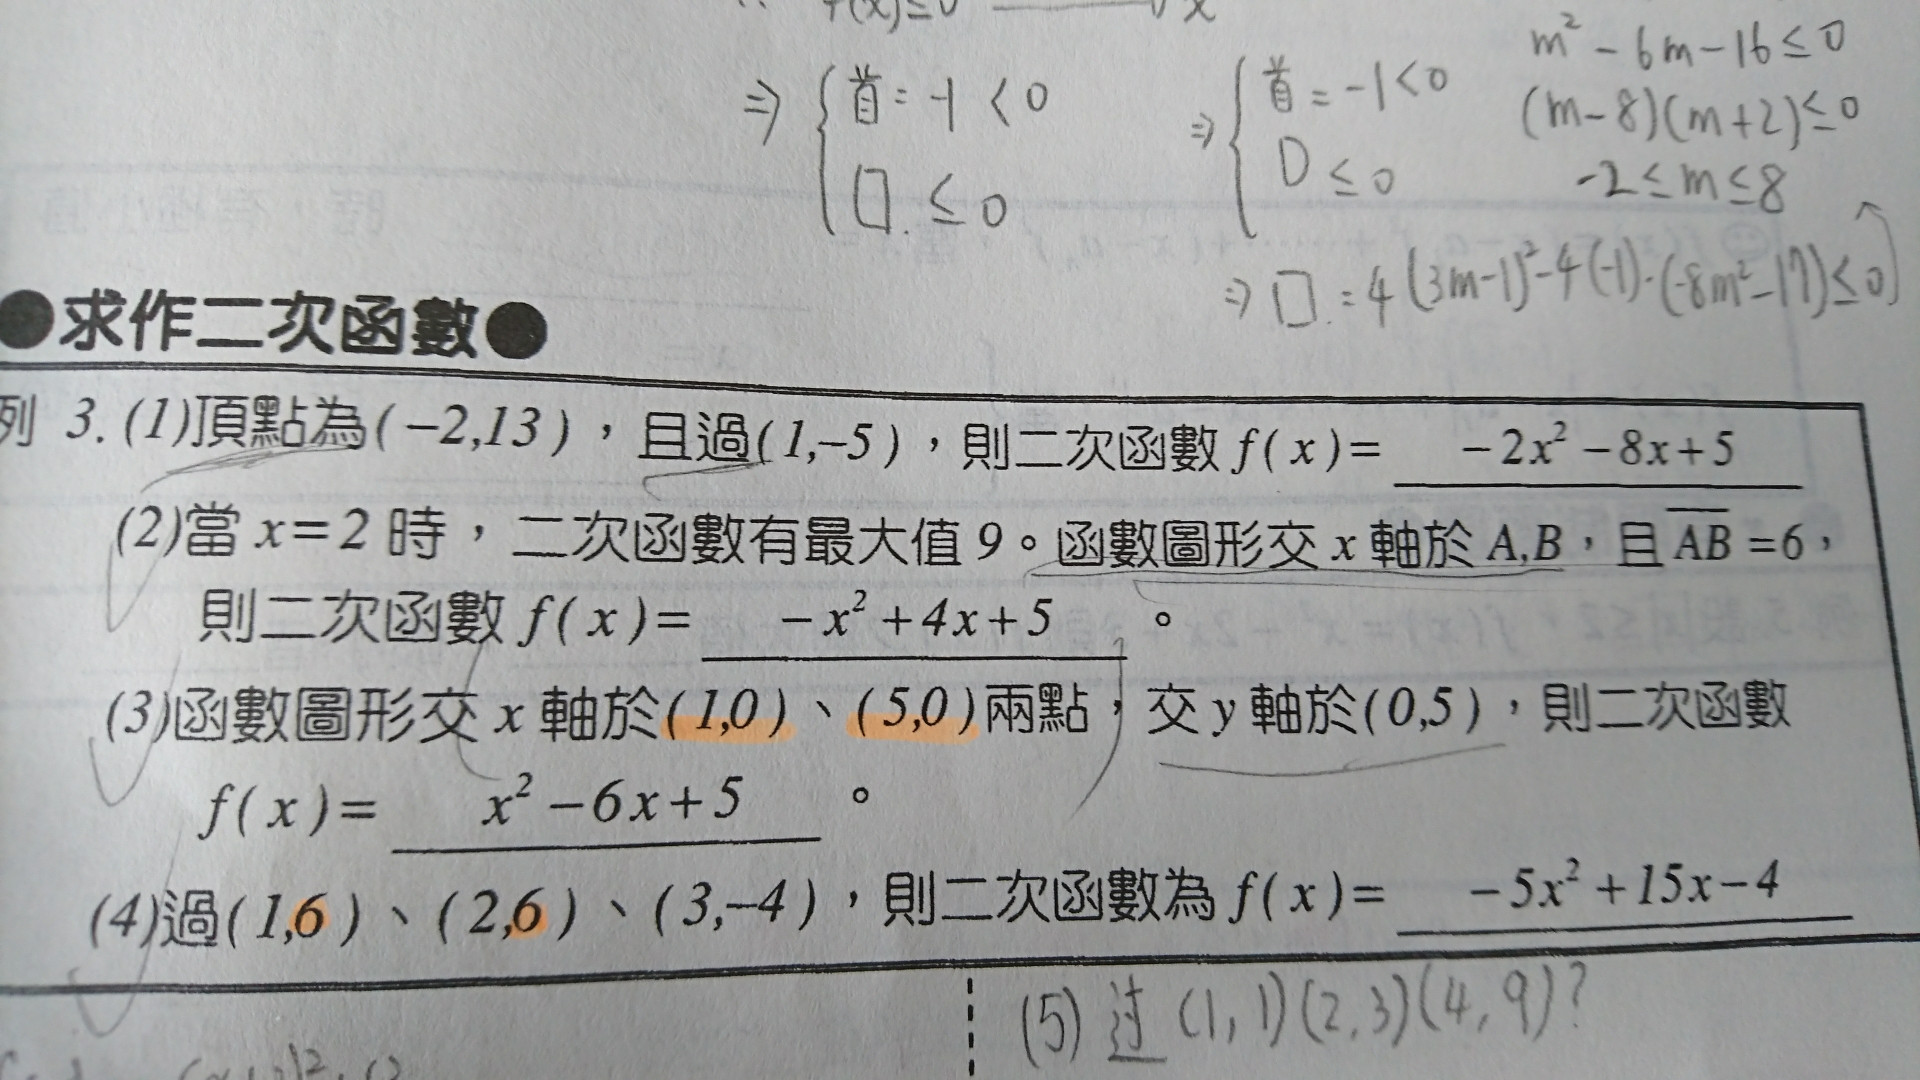 f(x)≤0
⇒ { 首=-1<0
□.≤0
⇒ { 首=-1<0
D≤0
m²-6m-16≤0
(m-8)(m+2)≤0
-2≤m≤8
⇒ □.=4(3m-1)²-4(-1)·(-8m²-17)≤0
●求作二次函數●
列 3.(1)頂點為(-2,13),且過(1,-5),則二次函數 f(x)= -2x²-8x+5
(2)當 x=2 時,二次函數有最大值 9。函數圖形交 x 軸於 A,B,且 A̅B̅=6,
則二次函數 f(x)= -x²+4x+5 。
(3)函數圖形交 x 軸於(1,0)、(5,0)兩點,交 y 軸於(0,5),則二次函數
f(x)= x²-6x+5 。
(4)過(1,6)、(2,6)、(3,-4),則二次函數為 f(x)= -5x²+15x-4
(5) 过 (1,1)(2,3)(4,9)?